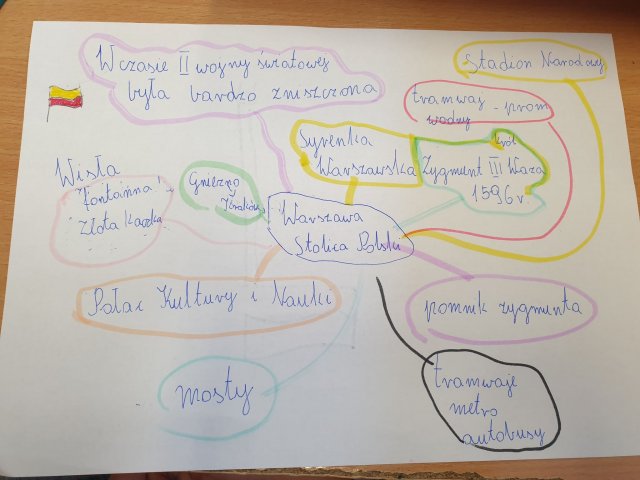 W czasie II wojny światowej
była bardzo zniszczona
Stadion Narodowy
tramwaj - prom
wodny
Syrenka
Warszawska
król
Zygmunt III Waza
1596 r.
Wisła
Fontanna
Złota kaczka
Gniezno
Kraków
Warszawa
Stolica Polski
Pałac Kultury i Nauki
pomnik zygmunta
mosty
tramwaje
metro
autobusy